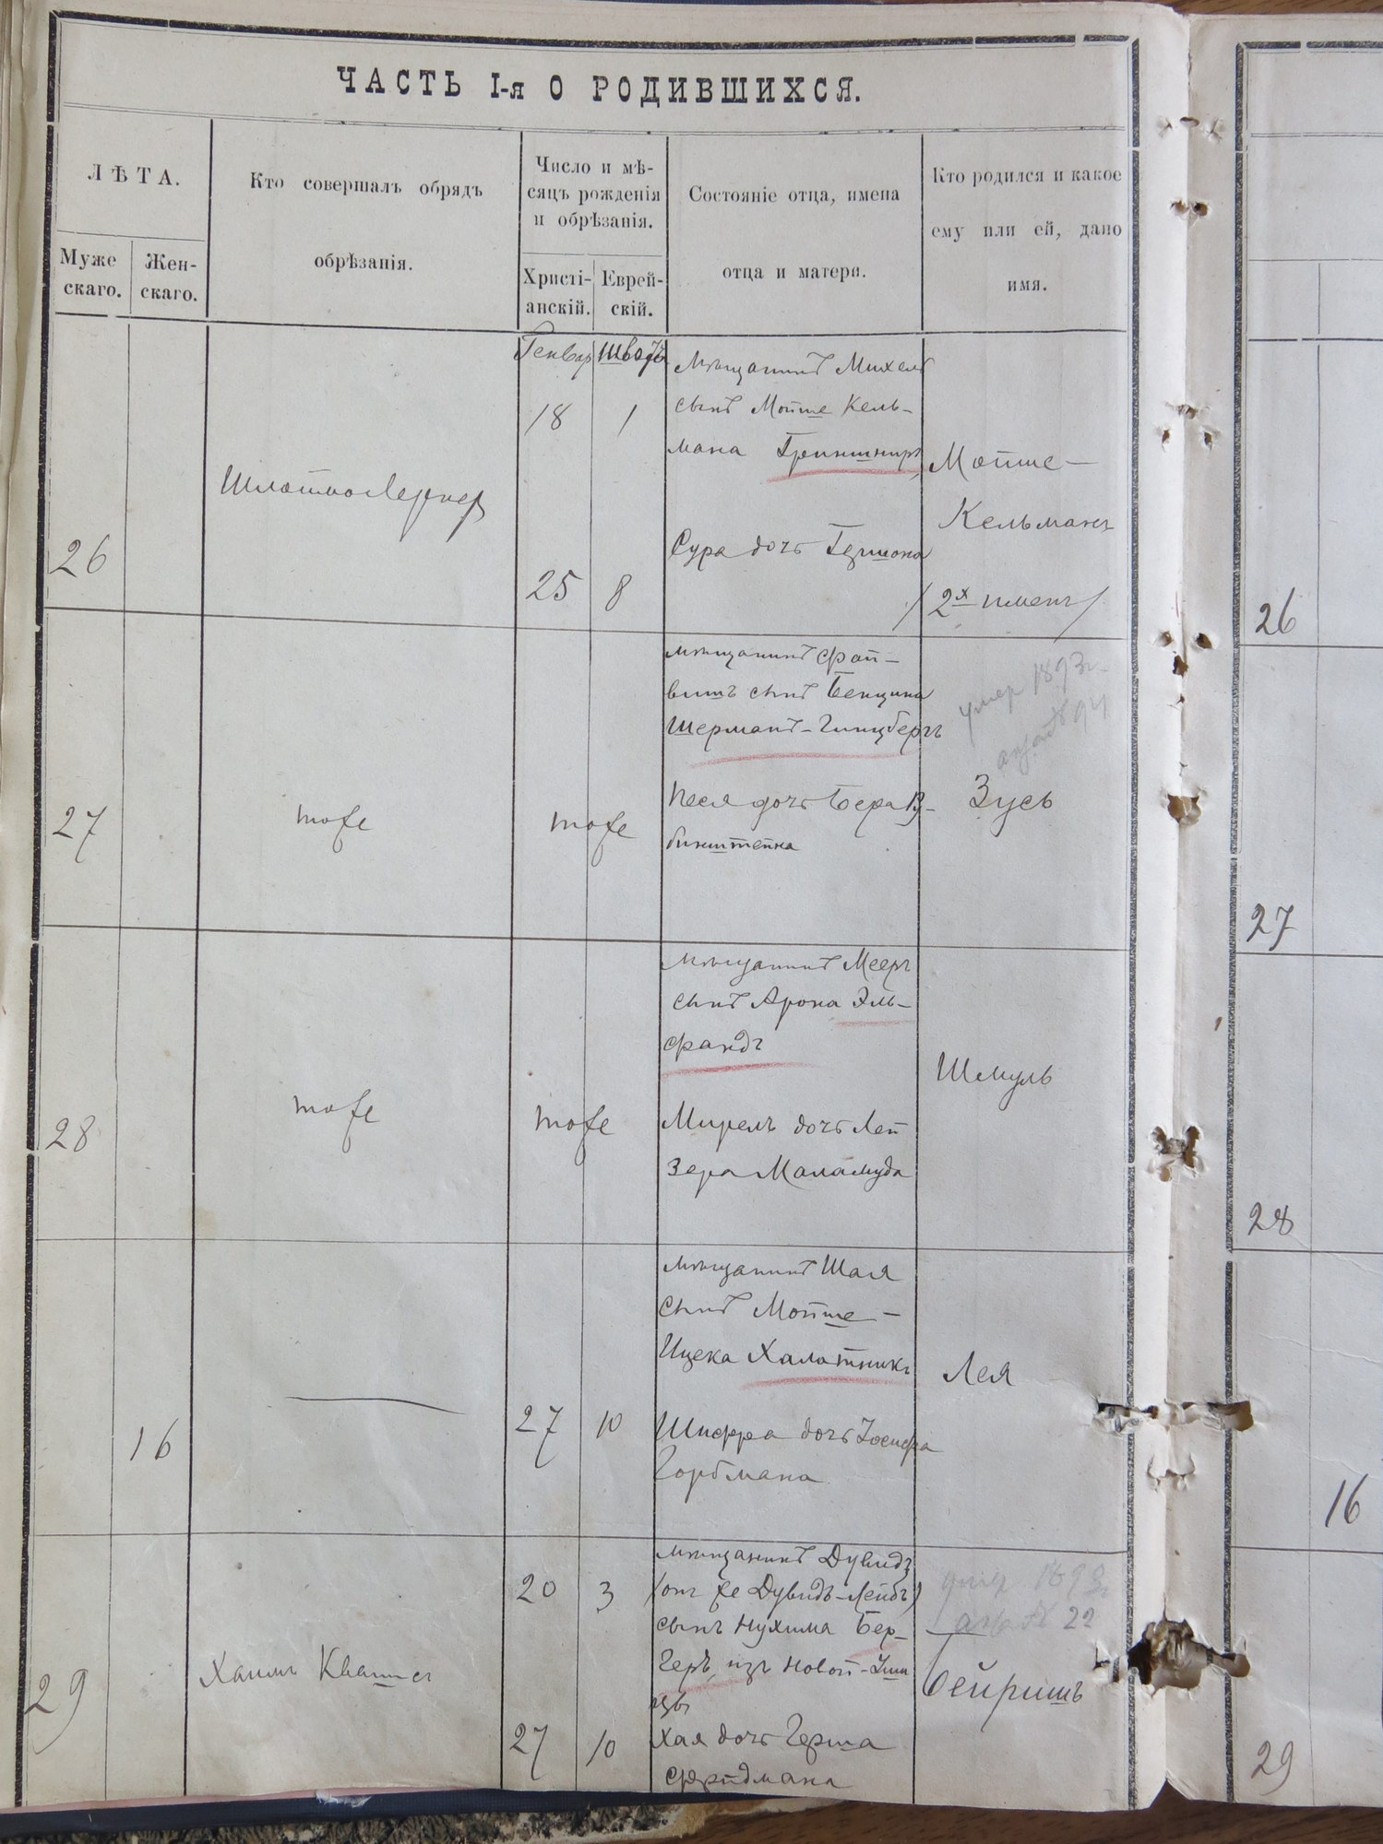 ЧАСТЬ I-я О РОДИВШИХСЯ.
ЛѢТА.
Муже
скаго.
Жен-
скаго.
Кто совершалъ обрядъ
обрѣзанія.
Число и мѣ-
сяцъ рожденія
и обрѣзанія.
Христі-
анскій.
Еврей-
скій.
Состояніе отца, имена
отца и матери.
Кто родился и какое
ему или ей, дано
имя.
26
Шлойма Лернер
Генвар
Шватъ
18
1
25
8
Мѣщанинъ Михель
сынъ Мойше Кель-
мана Гринштир
Сура дочь Гершона
Мойше-
Кельманъ
/2х именъ/
26
27
тоже
тоже
мѣщанинъ Фай-
вишъ сынъ Бенциона
Шерманъ-Гинцбергъ
Песя дочь Бера Ру-
бинштейна
умер 1893г.
актъ № 94
Зусь
27
28
тоже
тоже
мѣщанинъ Мееръ
сынъ Арона Эль-
фандъ
Мирель дочь Лей
зера Маламуда
Шмуль
28
16
27
10
мѣщанинъ Шая
сынъ Мойше-
Ицека Халатникъ
Шифра дочь Иосифа
Горбмана
Лея
16
29
Хаимъ Квашег
20
3
27
10
мѣщанинъ Дувидъ
(онъ же Дувидъ-Лейбъ)
сынъ Нухима Бер-
геръ, изъ Новой-Уши
цы
Хая дочь Герша
Фридмана
умер 1893г
актъ № 22
Бейришъ
29